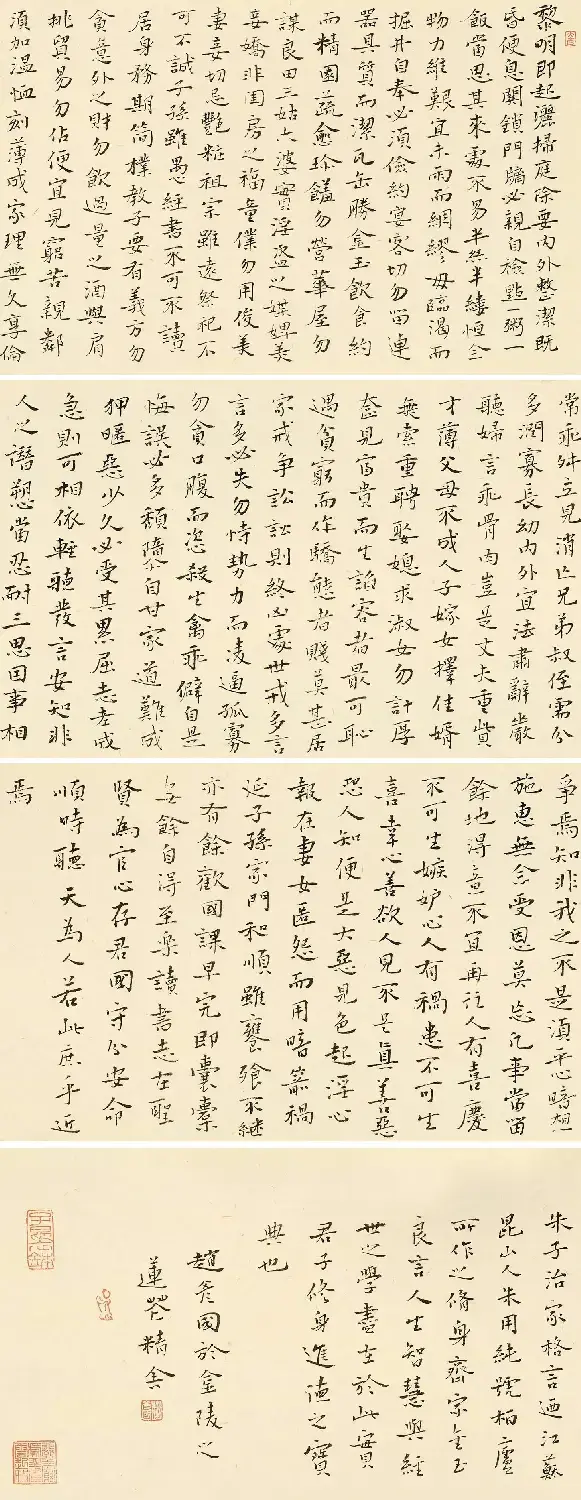 黎明即起灑掃庭除要內外整潔既
昏便息關鎖門牖必親自檢點一粥一
飯當思其來處不易半絲半縷恒念
物力維艱宜未雨而綢繆毋臨渴而
掘井自奉必須儉約宴客切勿留連
器具質而潔瓦缶勝金玉飲食約
而精園蔬愈珍饈勿營華屋勿
謀良田三姑六婆實淫盜之媒婢美
妾嬌非閨房之福童僕勿用俊美
妻妾切忌艷粧祖宗雖遠祭祀不
可不誠子孫雖愚經書不可不讀
居身務期簡樸教子要有義方勿
貪意外之財勿飲過量之酒與肩
挑貿易勿佔便宜見窮苦親鄰
須加溫恤刻薄成家理無久享倫
常乖舛立見消亡兄弟叔侄需分
多潤寡長幼內外宜法肅辭嚴
聽婦言乖骨肉豈是丈夫重貲
才薄父母不成人子嫁女擇佳婿
無索重聘娶媳求淑女勿計厚
奩見富貴而生諂容者最可恥
遇貧窮而作驕態者賤莫甚居
家戒爭訟訟則終凶處世戒多言
言多必失勿恃勢力而凌逼孤寡
勿貪口腹而恣殺生禽乖僻自是
悔誤必多頹隳自甘家道難成
狎暱惡少久必受其累屈志老成
急則可相依輕聽發言安知非
人之譖愬當忍耐三思因事相
爭焉知非我之不是須平心暗想
施惠無念受恩莫忘凡事當留
餘地得意不宜再往人有喜慶
不可生嫉妒心人有禍患不可生
喜幸心善欲人見不是真善惡
恐人知便是大惡見色起淫心
報在妻女匿怨而用暗箭禍
延子孫家門和順雖饔飧不繼
亦有餘歡國課早完即囊橐
無餘自得至樂讀書志在聖
賢為官心存君國守分安命
順時聽天為人若此庶乎近
焉
朱子治家格言迺江蘇
昆山人朱用純號柏廬
所作之脩身齊家金玉
良言人生智慧與經
世之學盡在於此實
君子修身進德之寶
典也
趙彥國於金陵之
蓮華精舍